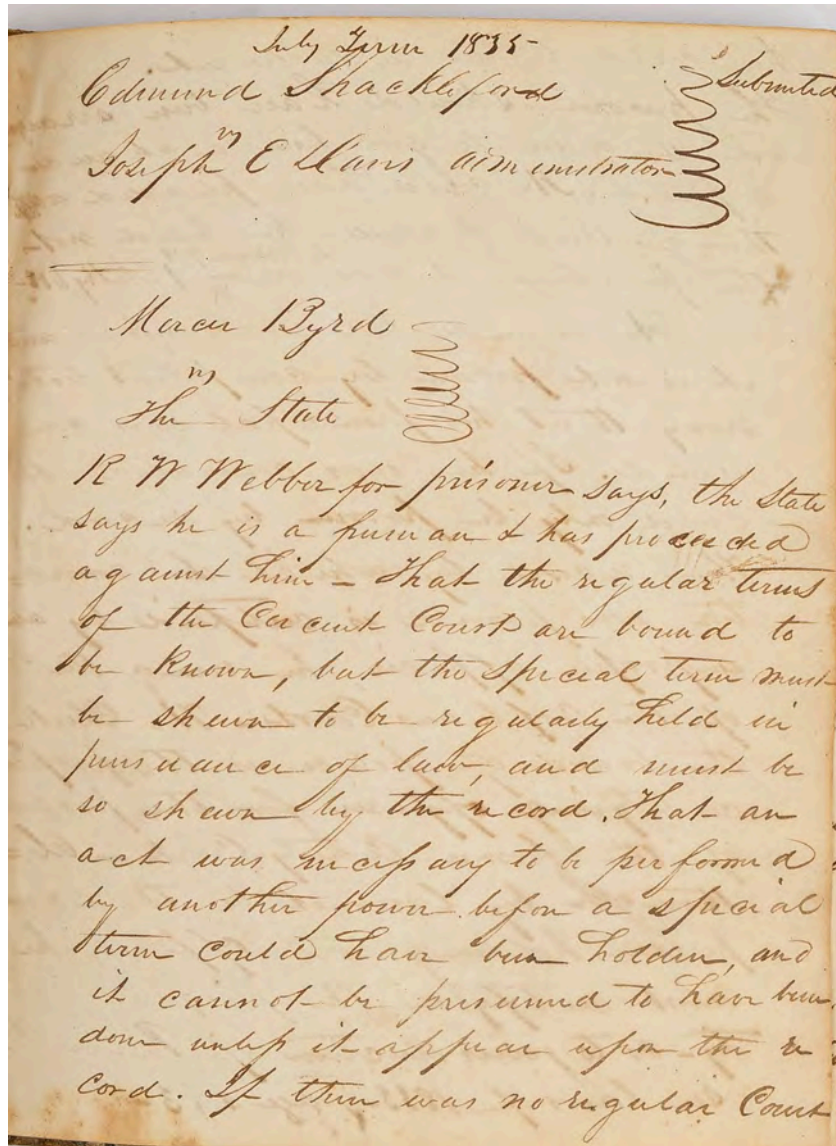 July Term 1835
Edmund Shackleford Submitted
vs
Joseph E Davis administrator
Mercer Byrd
vs
The State
R W Webber for prisoner says, the State
says he is a freeman & has proceeded
against him – That the regular terms
of the Circuit Court are bound to
be known, but the special term must
be shewn to be regularly held in
pursuance of law, and must be
so shewn by the record. That an
act was necessary to be performed
by another power before a special
term could have been holden, and
it cannot be presumed to have been
done unless it appear upon the re
cord. If there was no regular Court